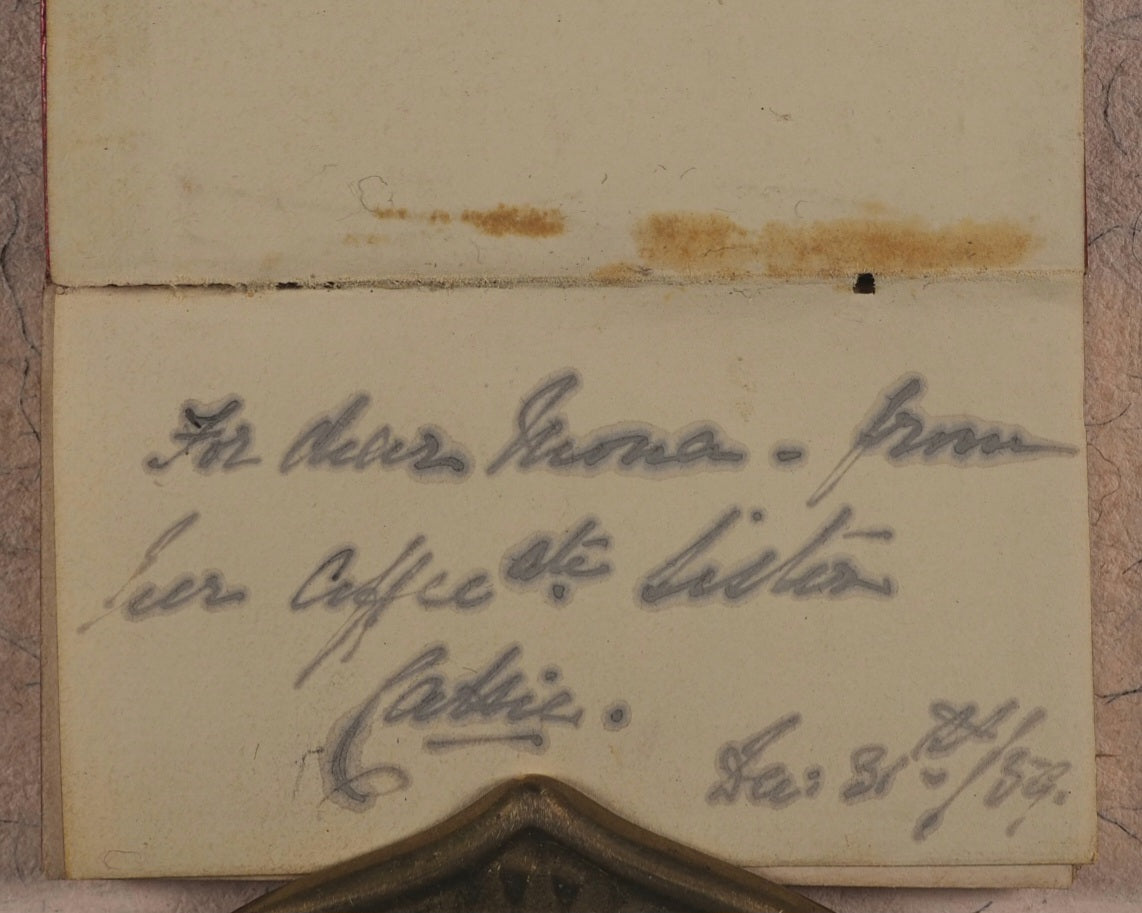 For dear Mona - from
her affecate. Sister
Cassie.
Dec: 31st/89.